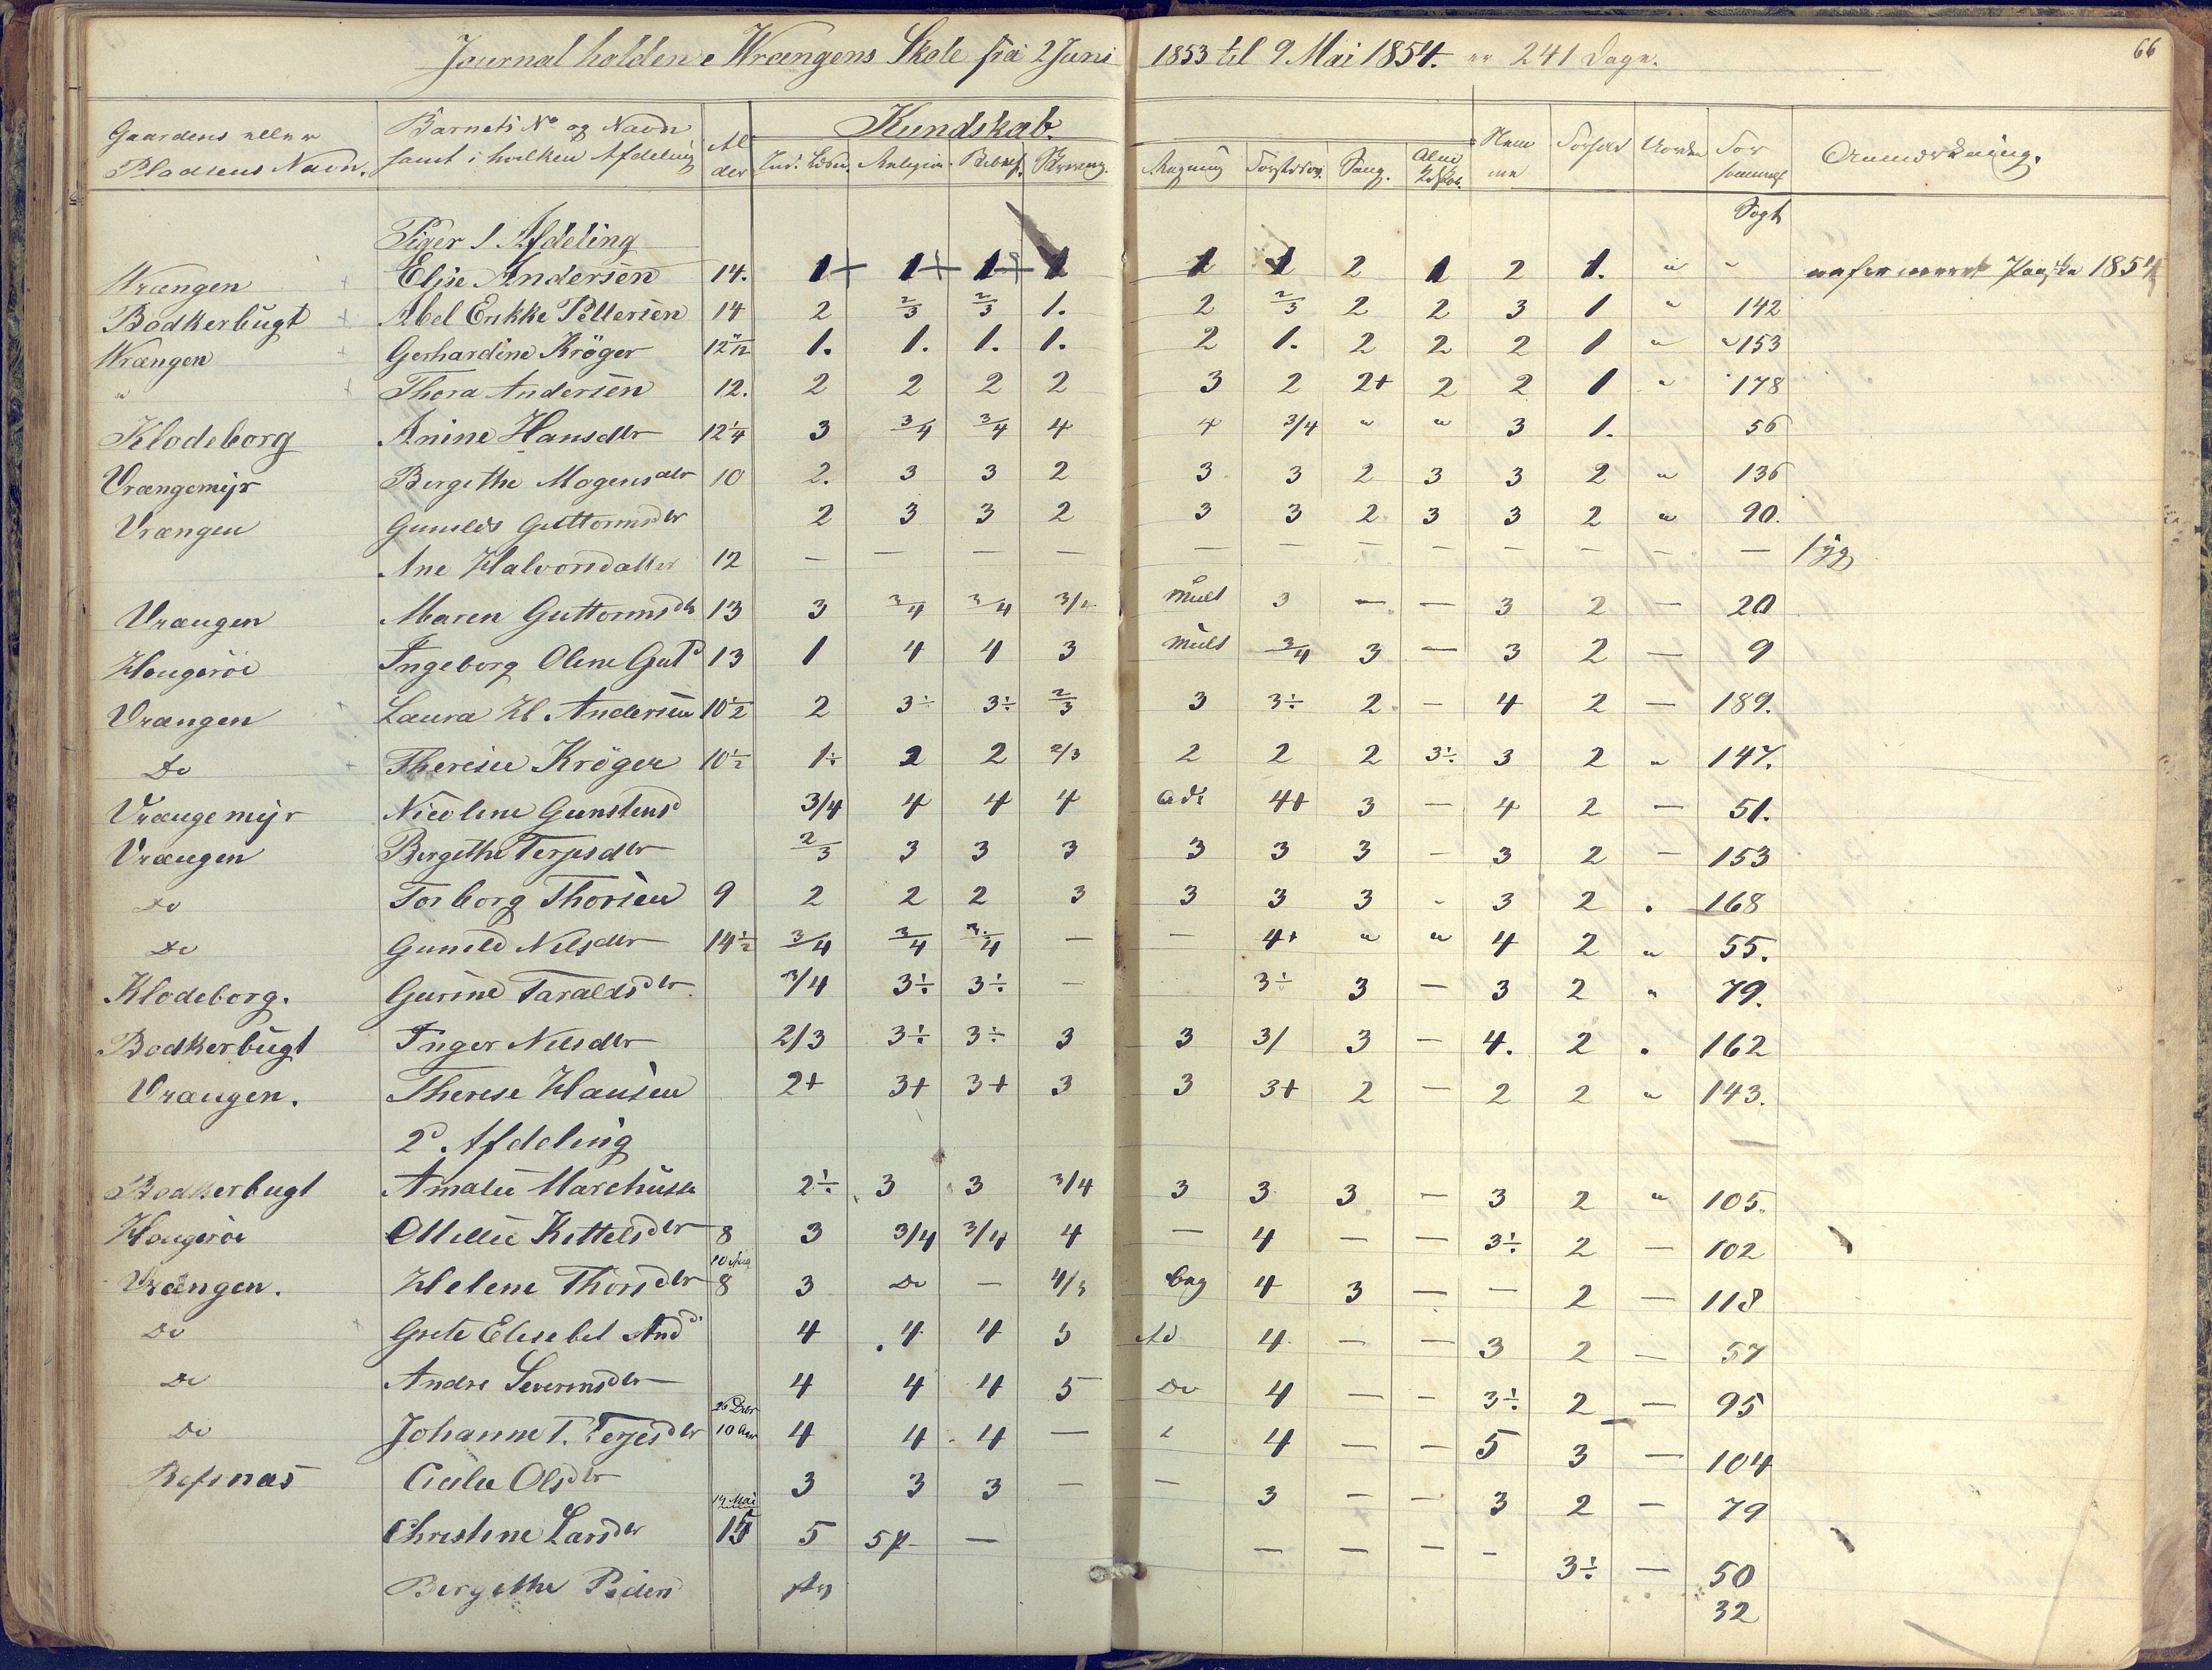 66
Journal holden i Wrængens Skole fra 2 Juni 1853 til 9 Mai 1854. er 241 Dage.
Gaardens eller Pladsens Navn. Barnets No og Navn samt i hvilken Afdeling Alder Kundskab. Anmærkning.
Religion Skrivning. Regning Sang. Forhold
Søgt
Piger 1 Afdeling
Wrængen Elise Andersen 14. 1 1 1 1 1 1 2 1 2 1. " " Paaske 1854
Bødkerbugt Abel Erikke Pettersen 14 2 2/3 2/3 1. 2 2/3 2 2 3 1 " 142
Wrængen Gerhardine Krøger 12 1. 1. 1. 1. 2 1. 2 2 2 1 " " 153
" Thora Andersen 12. 2 2 2 2 3 2 2+ 2 2 1 " 178
Klodeborg Anine Hansdtr 12¼ 3 3/4 3/4 4 4 3/4 " " 3 1. 56
Vrængemyr Bergithe Mogensdtr 10 2. 3 3 2 3 3 2 3 3 2 " 136
Vrængen Guttormsdtr 2 3 3 2 3 3 2 3 3 2 " 90.
Ane Halvorsdatter 12 — — — — — — — — — — — — syg
Vrængen Maren Guttormsdtr 13 3 3/4 3/4 3/4 Mult 3 — — 3 2 — 20
Hougerøe Ingeborg Oline Gutd 13 1 4 4 3 Mult 3/4 3 — 3 2 — 9
Vrængen Laura H. Andersen 10½ 2 3÷ 3÷ 2/3 3 3÷ 2 - 4 2 — 189.
Do Therese Krøger 10½ 1÷ 2 2 2/3 2 2 2 3÷ 3 2 " 147.
Vrængemyr Nicoline Gunstensd 3/4 4 4 4 Adt 4+ 3 — 4 2 — 51.
Vrængen Bergithe Terjesdtr 2/3 3 3 3 3 3 3 - 3 2 — 153
Do Torborg Thorsen 9 2 2 2 3 3 3 3 - 3 2 . 168
Do Gunild Nilsdtr 14½ 3/4 3/4 3/4 — — 4+ " " 4 2 " 55.
Klodeborg. Gurine Taraldsdtr 3/4 3÷ 3÷ — 3÷ 3 — 3 2 " 79.
Bødkerbugt Inger Nilsdtr 2/3 3÷ 3÷ 3 3 3/ 3 — 4. 2 . 162
Vrængen. Therese Hansen 2+ 3+ 3+ 3 3 3+ 2 — 2 2 " 143.
2d. Afdeling
Bødkerbugt Amalie 2÷ 3 3 3/4 3 3 3 — 3 2 " 105.
Hougerøe Ommelie Kittelsdtr 8 3 3/4 3/4 4 — 4 — — 3÷ 2 — 102
10 Aug
Vrængen. Helene Thorsdtr 8 3 Do — 4/5 Beg 4 3 — — 2 — 118
Do Grete Elisebet Andd 4 4 4 5 Ad 4 — — 3 2 — 57
Do Andre Severinsdtr 4 4 4 5 Do 4 — - 3÷ 2 — 95
26 Debr
Do Johanne T. Terjesdtr 10 Aar 4 4 4 — 4 — - 5 3 — 104
Refsnæs Olsdtr 3 3 3 — — 3 - - 3 2 — 79
14 Mai
Christine Larsdtr 15 5 5 — — — — - 3÷ — 50
Bergithe Peders 32